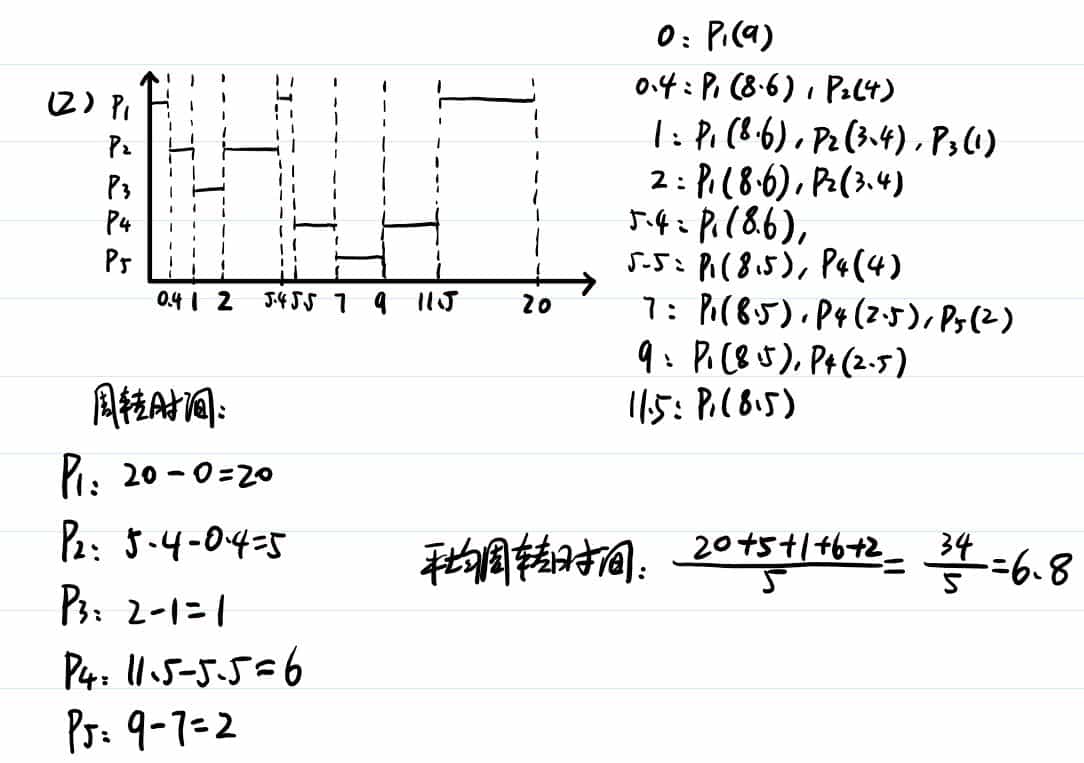 (2)
P1
P2
P3
P4
P5
0.4 1 2 5.4 5.5 7 9 11.5 20
0: P1(9)
0.4: P1(8.6), P2(4)
1: P1(8.6), P2(3.4), P3(1)
2: P1(8.6), P2(3.4)
5.4: P1(8.6),
5.5: P1(8.5), P4(4)
7: P1(8.5), P4(2.5), P5(2)
9: P1(8.5), P4(2.5)
11.5: P1(8.5)
周转时间:
P1: 20-0=20
P2: 5.4-0.4=5
P3: 2-1=1
P4: 11.5-5.5=6
P5: 9-7=2
平均周转时间: (20+5+1+6+2)/5 = 34/5 = 6.8